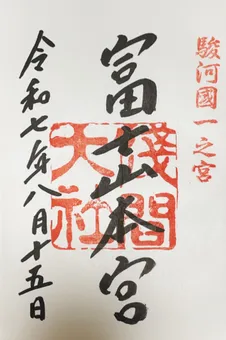 駿河國一之宮
富士山本宮
淺間大社
令和七年八月十五日